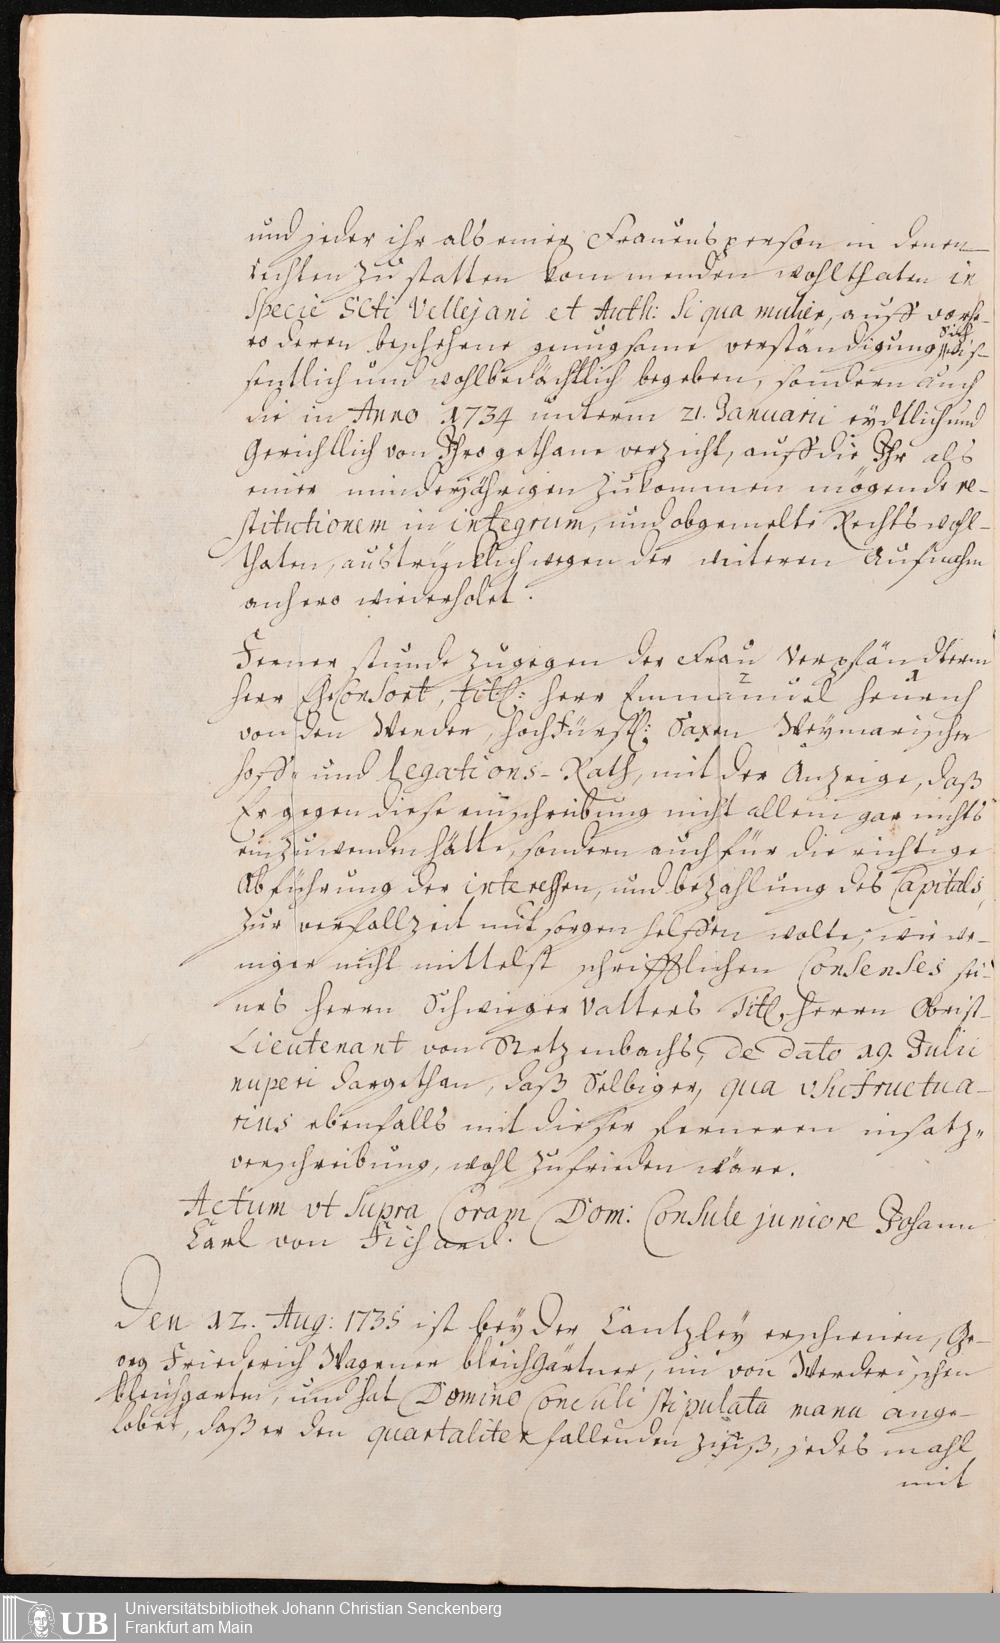 und jeder ihr als einer Frauensperson in denen
rechten zu statten kommenden wohlthaten in
Specie Scti Vellejani et Auth: Si qua mulier, auff vorhe-
ro deren beschehene genugsame verständigung, sich wis-
sentlich und wohlbedächtlich begeben, sondern auch
die in Anno 1734 unterm 21. Januarii eydtlich und
Gerichtlich von Ihro gethane verzicht, auff die Ihr als
einer minderjährigen zukommen mögende re-
stitutionem in integrum, und obgemelte Rechtswohl-
thaten, austrücklich wegen der weiteren Aufnahm
anhero wiederholet.
Ferner stunde zugegen der Frau Verpfändterin
herr EheConsort, titl: herr Emmanuel henrich
von den Werder, hochfürstl: Saxen Weymarischer
hoff- und Legations-Rath, mit der Anzeige, daß
Er gegen diese einschreibung nicht allein gar nichts
einzuwenden hätte, sondern auch für die richtige
Abführung der interessen, und bezahlung des Capitals,
zur verfallzeit mit sorgen helffen wolte, wie we-
niger nicht mittelst schrifftlichen Consenses sei-
nes herrn Schwieger Vatters Titl. herrn Obrist-
Lieutenant von Retzenbachs, de dato 19. Julii
nuperi dargethan, daß Selbiger, qua usufructua-
rius ebenfalls mit dieser ferneren insatz-
verschreibung, wohl zufrieden wäre.
Actum ut Supra Coram Dom: Consule juniore Johann
Carl von Fichard.
Den 12. Aug: 1735 ist bey der Cantzley erschienen, Ge-
org Friederich Wagener bleichgärtner, im von Werderischen
bleichgarten, und hat Domino Consuli stipulata manu ange-
lobet, daß er den quartaliter fallenden zinß, jedes mahl
mit
UB Universitätsbibliothek Johann Christian Senckenberg
Frankfurt am Main